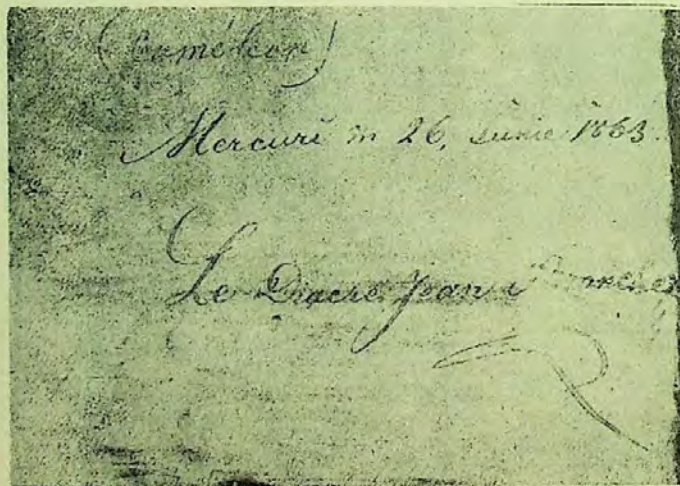 (Caméleon)
Mercuri in 26, Iunie 1863.
Le Diacre Jean